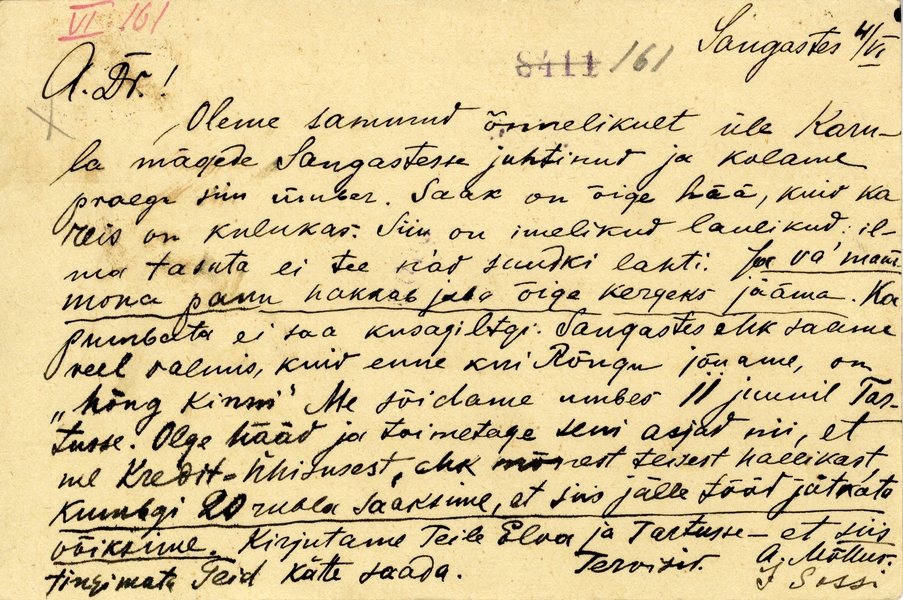 VI 161
Sangastes 4/VI
8411 161
A. Dr.!
Oleme samunud õnnelikult üle Karu-
la mägede Sangastesse juhtinud ja kolame
praega siin ümber. Saak on õige hää, kuid ka
reis on kulukas. Siin on imelikud laulikud: il-
ma tasuta ei tee nad suudki lahti. Ja va' mam-
mona pann hakkab juba õige kergeks jääma. Ka
pumbata ei saa kusagiltgi. Sangastes ehk saame
veel valmis, kuid enne kui Rõngu jõuame, on
„hõng kinni" Me sõidame umbes 11 juunil Tar-
tusse. Olge hääd ja toimetage seni asjad nii, et
me Kredit-Ühisusest, ehk mõnest teisest hallikast,
kumbgi 20 rubla saaksime, et siis jälle tööd jätkata
võiksime. Kirjutame Teile Elva ja Tartusse – et siis
tingimata Teid kätte saada. Tervisit. A. Mõttus.
J Sossi